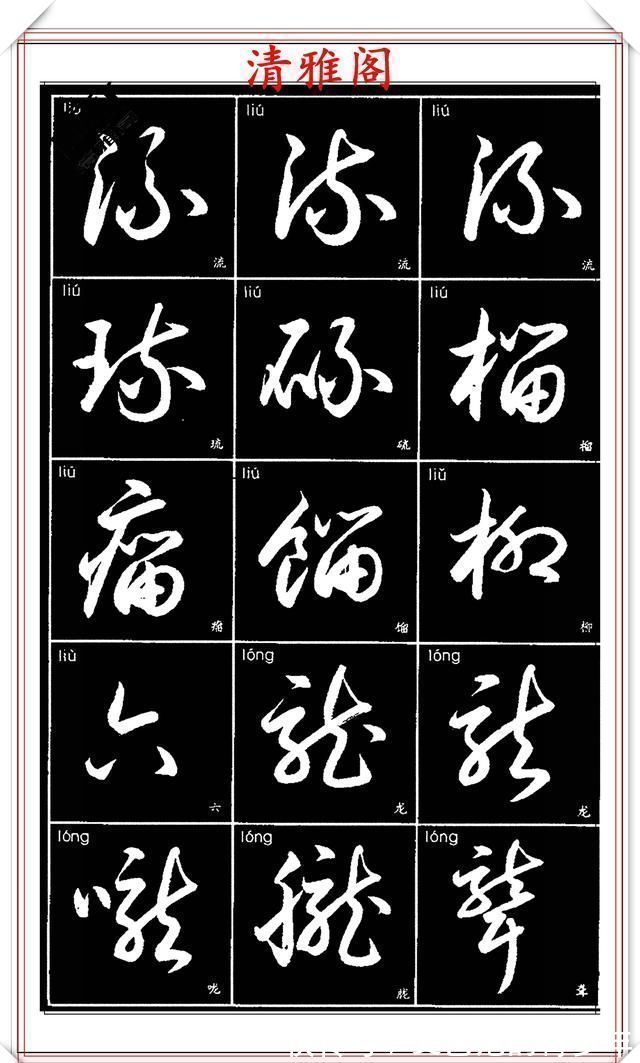 清雅阁
liú liú liú
流 流 流
liú liú liú
琉 硫 榴
liú liú liǔ
瘤 馏 柳
liù lóng lóng
六 龙 龙
lóng lóng lóng
咙 胧 聋